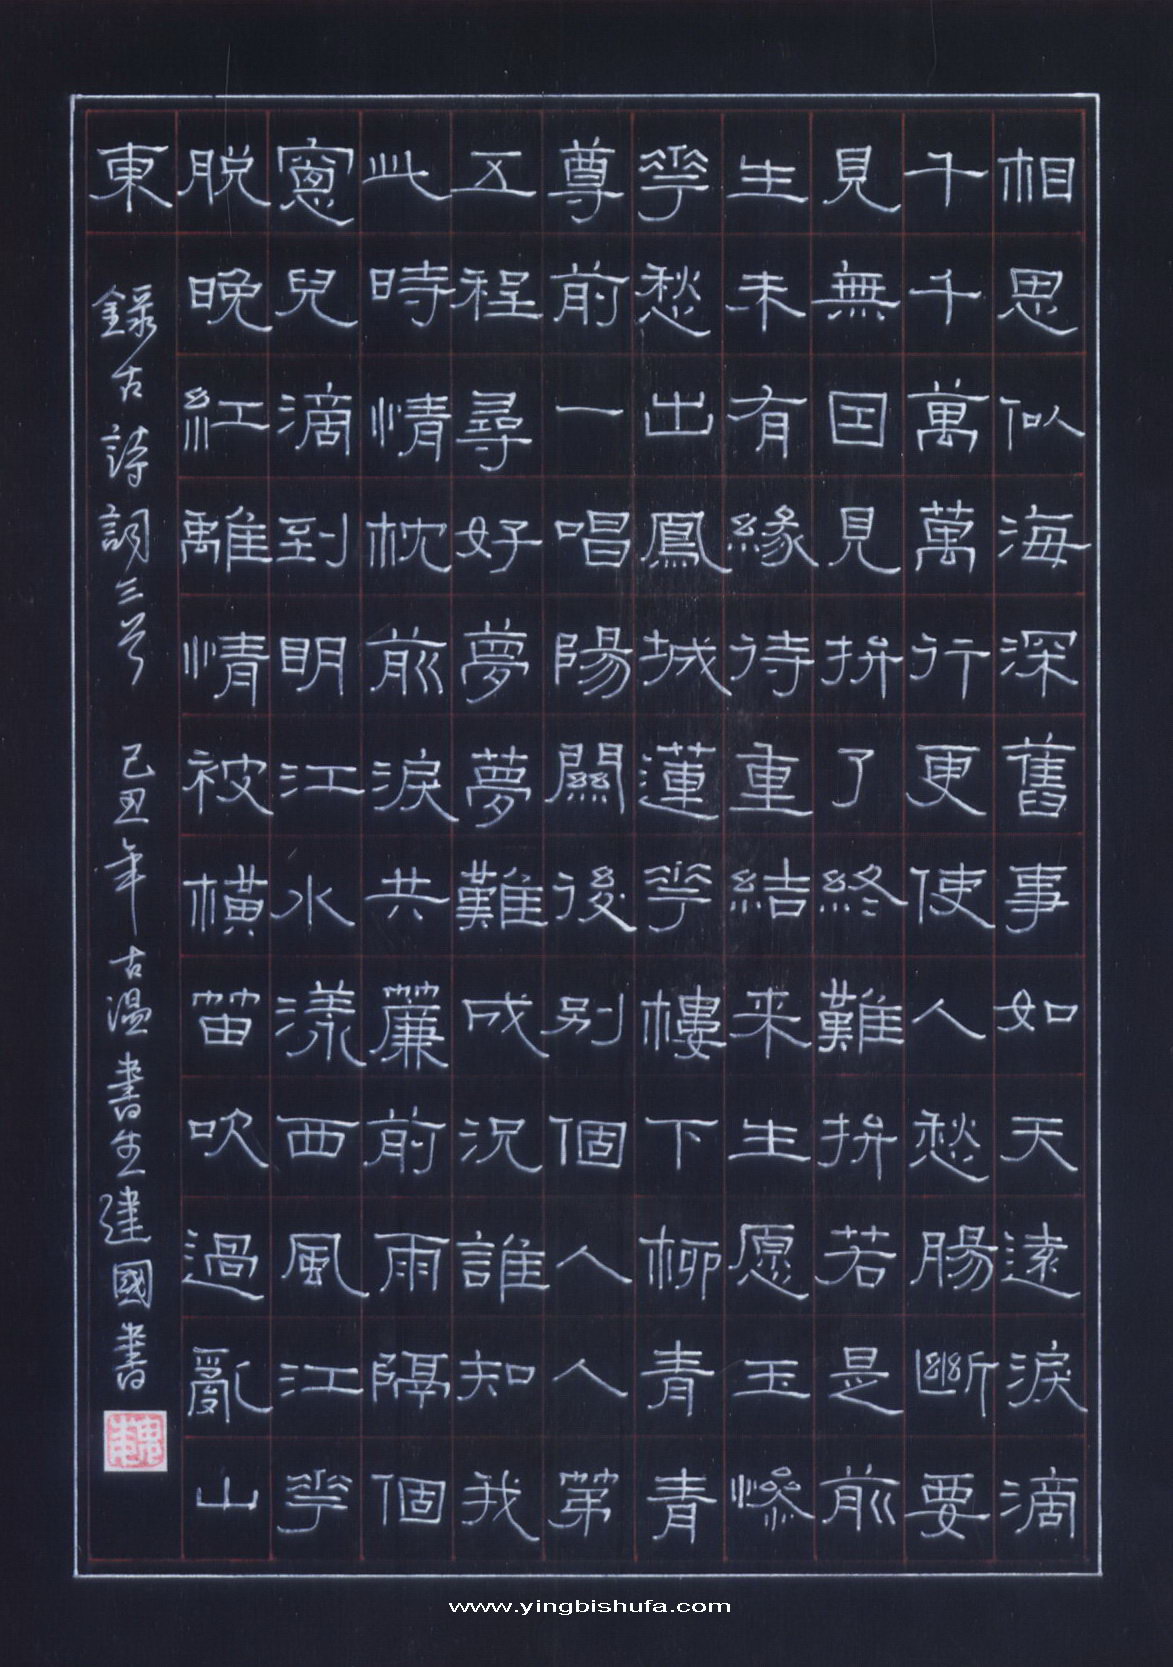 相思似海深舊事如天遠淚滴
千千萬萬行更使人愁腸斷要
見無因見拚了終難拚若是前
生未有緣待重結来生愿玉慘
花愁出鳳城蓮花樓下柳青青
尊前一唱陽關後別個人人第
五程尋好夢夢難成況誰知我
此時情枕前淚共簾前雨隔個
窻兒滴到明江水漾西風江花
脱晚紅離情被橫笛吹過亂山
東
錄古詩詞三首 己丑年古溫書生建國書
www.yingbishufa.com